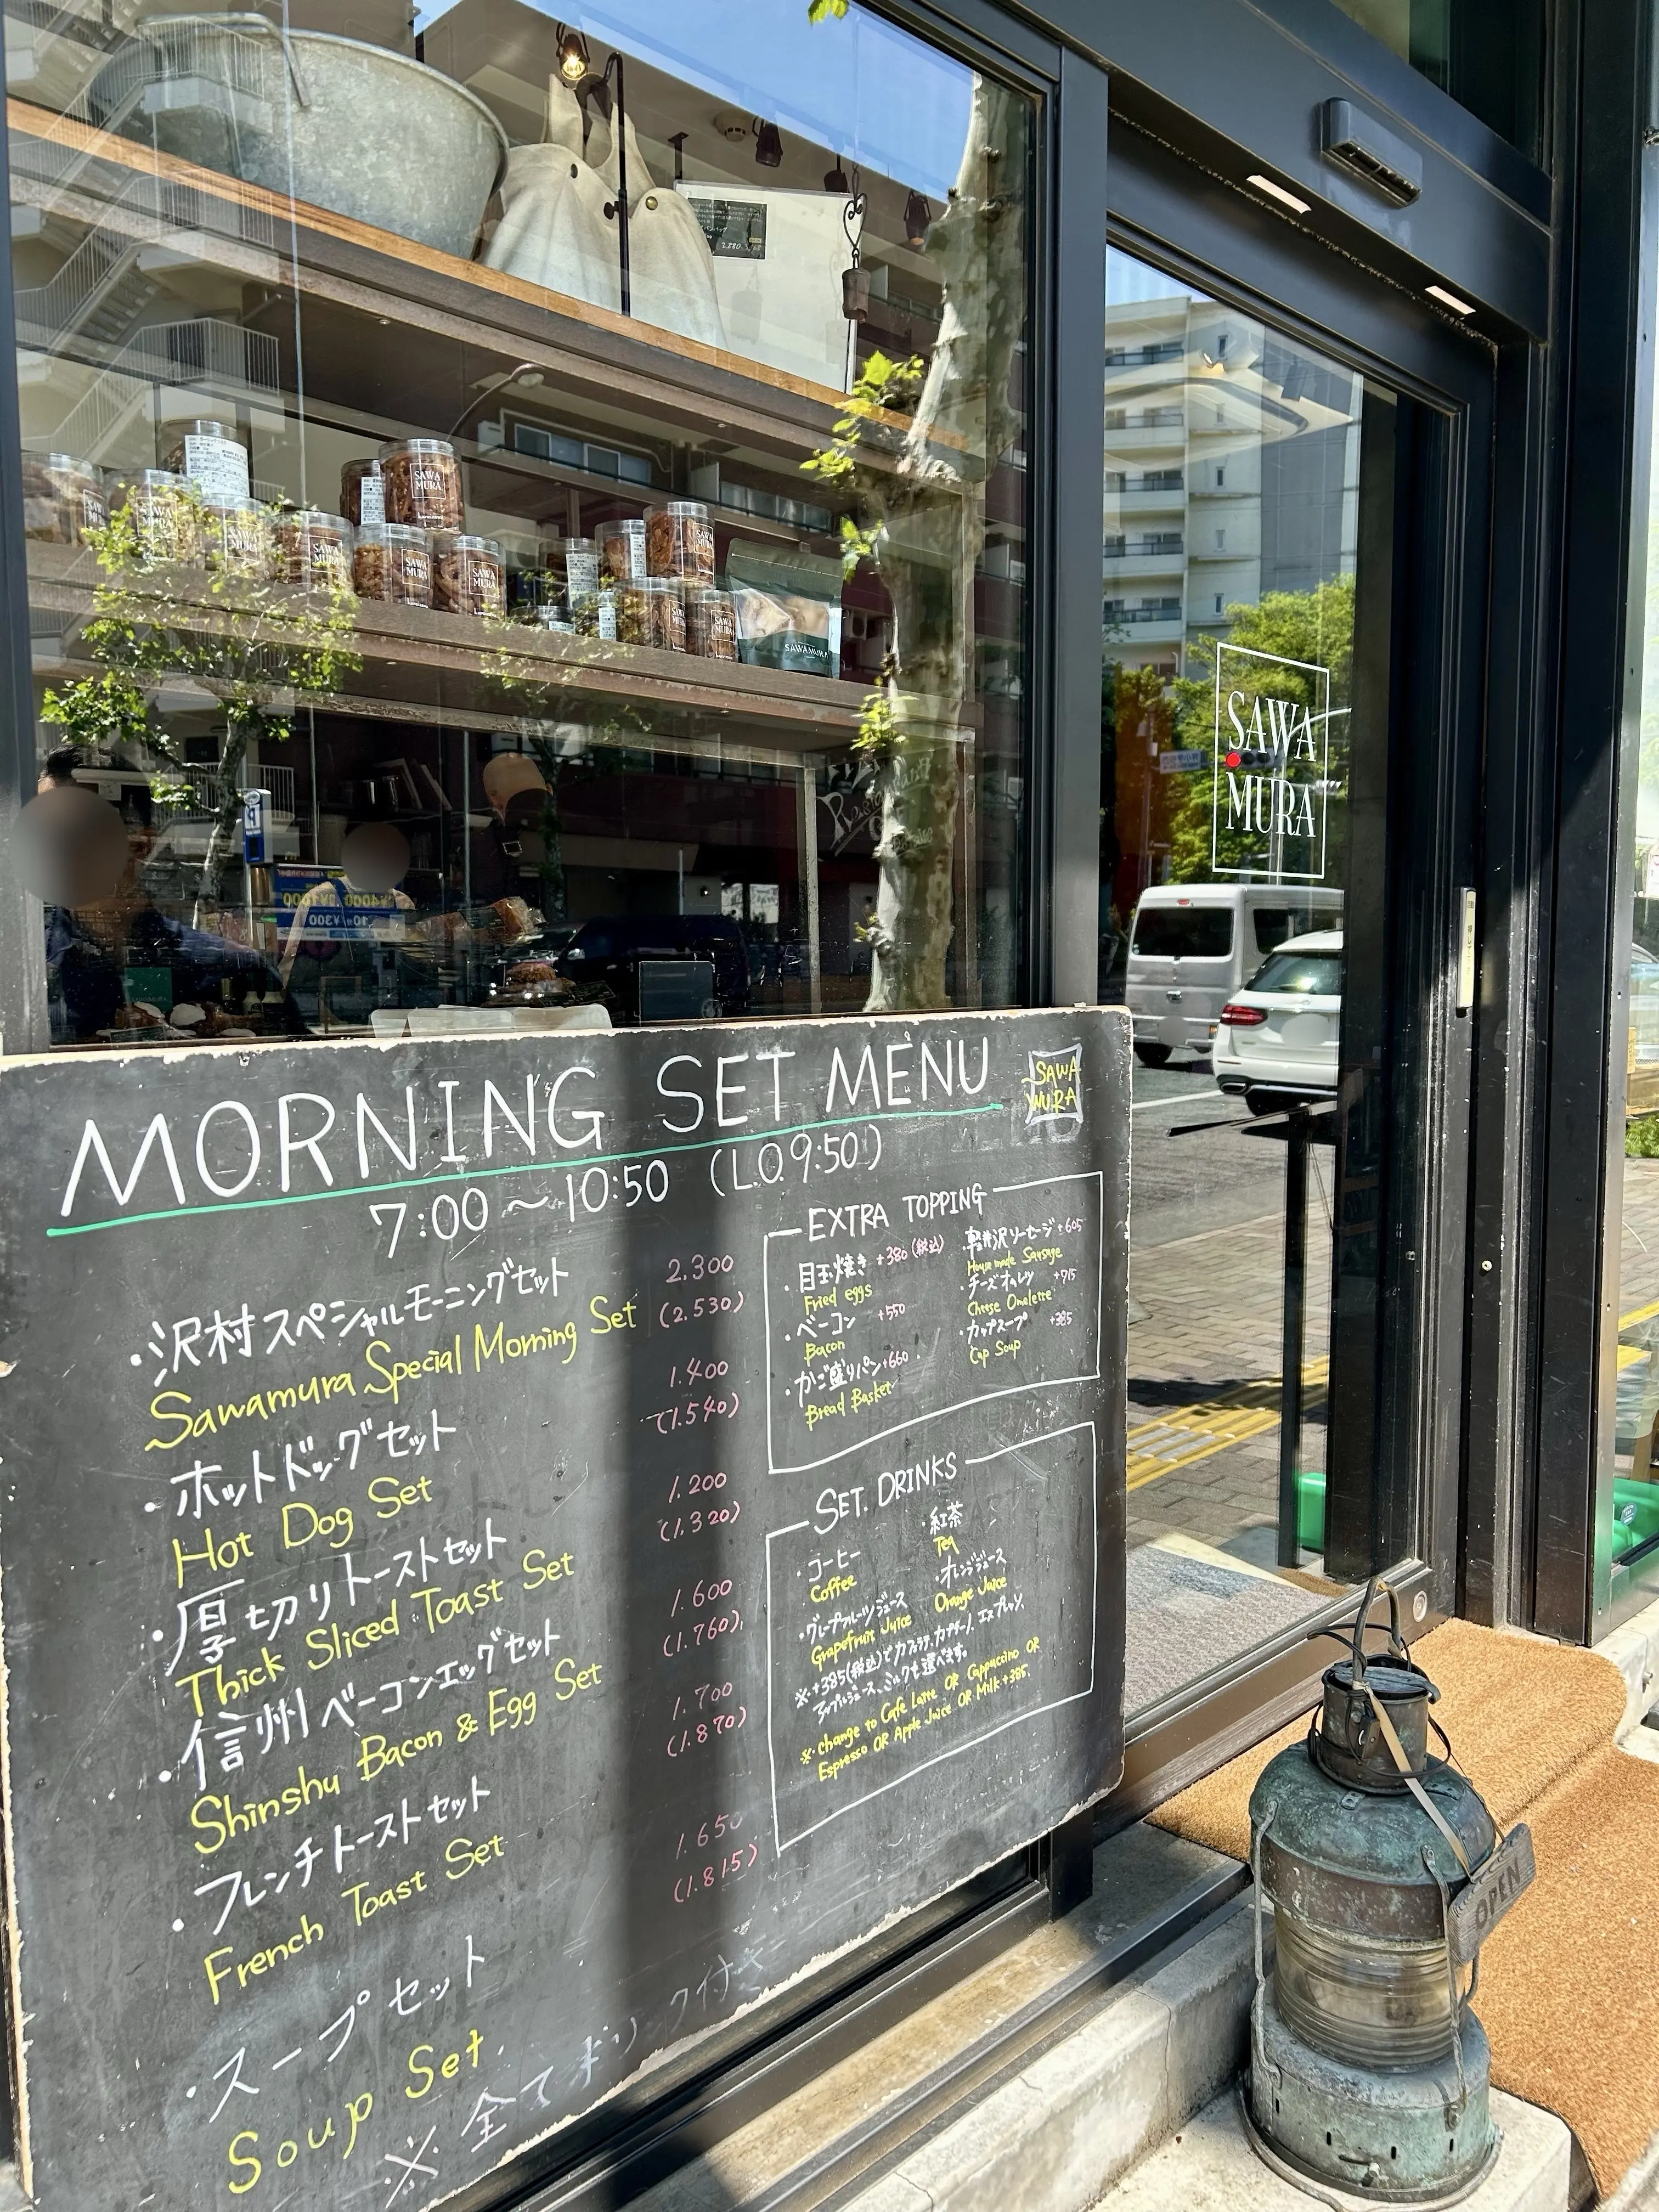 SAWA
MURA
SAWAMURA
SAWA
MURA
MORNING SET MENU
SAWA
MURA
7:00~10:50 (L.O.9:50)
・沢村スペシャルモーニングセット 2.300
Sawamura Special Morning Set (2.530)
・ホットドッグセット 1.400
Hot Dog Set (1.540)
・厚切りトーストセット 1.200
Thick Sliced Toast Set (1.320)
・信州ベーコンエッグセット 1.600
Shinshu Bacon & Egg Set (1.760)
・フレンチトーストセット 1.700
French Toast Set (1.870)
・スープセット 1.650
Soup Set (1.815)
※全てドリンク付き
EXTRA TOPPING
・目玉焼き +380(税込)
Fried eggs
・ベーコン +550
Bacon
・かご盛りパン+660
Bread Basket
・軽井沢ソーセージ+605
House made Sausage
・チーズオムレツ +715
Cheese Omelette
・カップスープ +385
Cup Soup
SET. DRINKS
・コーヒー
Coffee
・紅茶
Tea
・グレープフルーツジュース
Grapefruit Juice
・オレンジジュース
Orange Juice
※+385(税込)でカフェラテ、カプチーノ、エスプレッソ、
アップルジュース、ミルクも選べます。
※Change to Cafe Latte OR Cappuccino OR
Espresso OR Apple Juice OR Milk +385.
OPEN